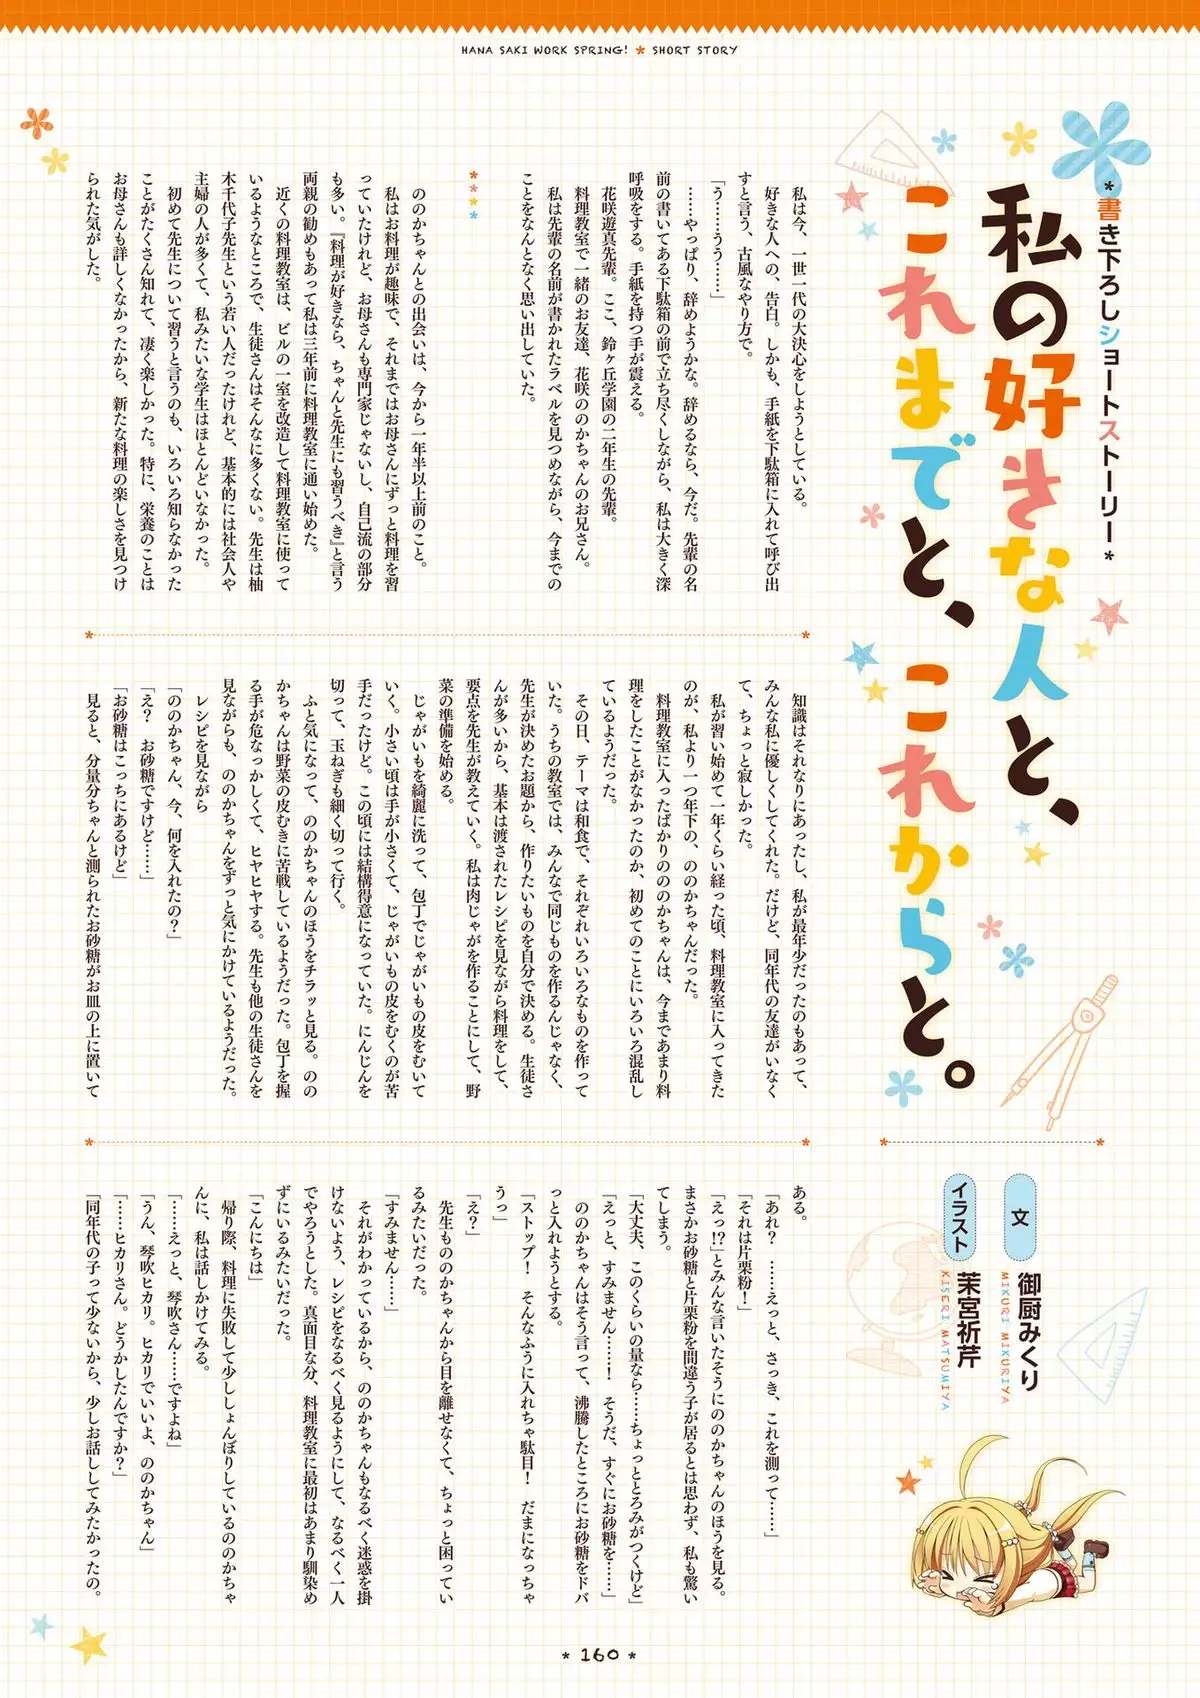 HANA SAKI WORK SPRING! * SHORT STORY
*書き下ろしショートストーリー*
私の好きな人と、
これまでと、これからと。
文
御厨みくり
MIKURI MIKURIYA
イラスト
茉宮祈芹
KISERI MATSUMIYA
私は今、一世一代の大決心をしようとしている。
好きな人への、告白。しかも、手紙を下駄箱に入れて呼び出
すと言う、古風なやり方で。
「う……うう……」
……やっぱり、辞めようかな。辞めるなら、今だ。先輩の名
前の書いてある下駄箱の前で立ち尽くしながら、私は大きく深
呼吸をする。手紙を持つ手が震える。
花咲遊真先輩。ここ、鈴ヶ丘学園の二年生の先輩。
料理教室で一緒のお友達、花咲ののかちゃんのお兄さん。
私は先輩の名前が書かれたラベルを見つめながら、今までの
ことをなんとなく思い出していた。
****
ののかちゃんとの出会いは、今から一年半以上前のこと。
私はお料理が趣味で、それまではお母さんにずっと料理を習
っていたけれど、お母さんも専門家じゃないし、自己流の部分
も多い。『料理が好きなら、ちゃんと先生にも習うべき』と言う
両親の勧めもあって私は三年前に料理教室に通い始めた。
近くの料理教室は、ビルの一室を改造して料理教室に使って
いるようなところで、生徒さんはそんなに多くない。先生は柚
木千代子先生という若い人だったけれど、基本的には社会人や
主婦の人が多くて、私みたいな学生はほとんどいなかった。
初めて先生について習うと言うのも、いろいろ知らなかった
ことがたくさん知れて、凄く楽しかった。特に、栄養のことは
お母さんも詳しくなかったから、新たな料理の楽しさを見つけ
られた気がした。
知識はそれなりにあったし、私が最年少だったのもあって、
みんな私に優しくしてくれた。だけど、同年代の友達がいなく
て、ちょっと寂しかった。
私が習い始めて一年くらい経った頃、料理教室に入ってきた
のが、私より一つ年下の、ののかちゃんだった。
料理教室に入ったばかりのののかちゃんは、今まであまり料
理をしたことがなかったのか、初めてのことにいろいろ混乱し
ているようだった。
その日、テーマは和食で、それぞれいろいろなものを作って
いた。うちの教室では、みんなで同じものを作るんじゃなく、
先生が決めたお題から、作りたいものを自分で決める。生徒さ
んが多いから、基本は渡されたレシピを見ながら料理をして、
要点を先生が教えていく。私は肉じゃがを作ることにして、野
菜の準備を始める。
じゃがいもを綺麗に洗って、包丁でじゃがいもの皮をむいて
いく。小さい頃は手が小さくて、じゃがいもの皮をむくのが苦
手だったけど。この頃には結構得意になっていた。にんじんを
切って、玉ねぎも細く切って行く。
ふと気になって、ののかちゃんのほうをチラッと見る。のの
かちゃんは野菜の皮むきに苦戦しているようだった。包丁を握
る手が危なっかしくて、ヒヤヒヤする。先生も他の生徒さんを
見ながらも、ののかちゃんをずっと気にかけているようだった。
レシピを見ながら
「ののかちゃん、今、何を入れたの？」
「え？　お砂糖ですけど……」
「お砂糖はこっちにあるけど」
見ると、分量分ちゃんと測られたお砂糖がお皿の上に置いて
ある。
「あれ？　……えっと、さっき、これを測って……」
「それは片栗粉！」
「えっ!?」とみんな言いたそうにののかちゃんのほうを見る。
まさかお砂糖と片栗粉を間違う子が居るとは思わず、私も驚い
てしまう。
「大丈夫、このくらいの量なら……ちょっととろみがつくけど」
「えっと、すみません……！　そうだ、すぐにお砂糖を……」
ののかちゃんはそう言って、沸騰したところにお砂糖をドバ
っと入れようとする。
「ストップ！　そんなふうに入れちゃ駄目！　だまになっちゃ
うっ」
「え？」
先生もののかちゃんから目を離せなくて、ちょっと困ってい
るみたいだった。
「すみません……」
それがわかっているから、ののかちゃんもなるべく迷惑を掛
けないよう、レシピをなるべく見るようにして、なるべく一人
でやろうとした。真面目な分、料理教室に最初はあまり馴染め
ずにいるみたいだった。
「こんにちは」
帰り際、料理に失敗して少ししょんぼりしているののかちゃ
んに、私は話しかけてみる。
「……えっと、琴吹さん……ですよね」
「うん、琴吹ヒカリ。ヒカリでいいよ、ののかちゃん」
「……ヒカリさん。どうかしたんですか？」
「同年代の子って少ないから、少しお話ししてみたかったの。
* 160 *